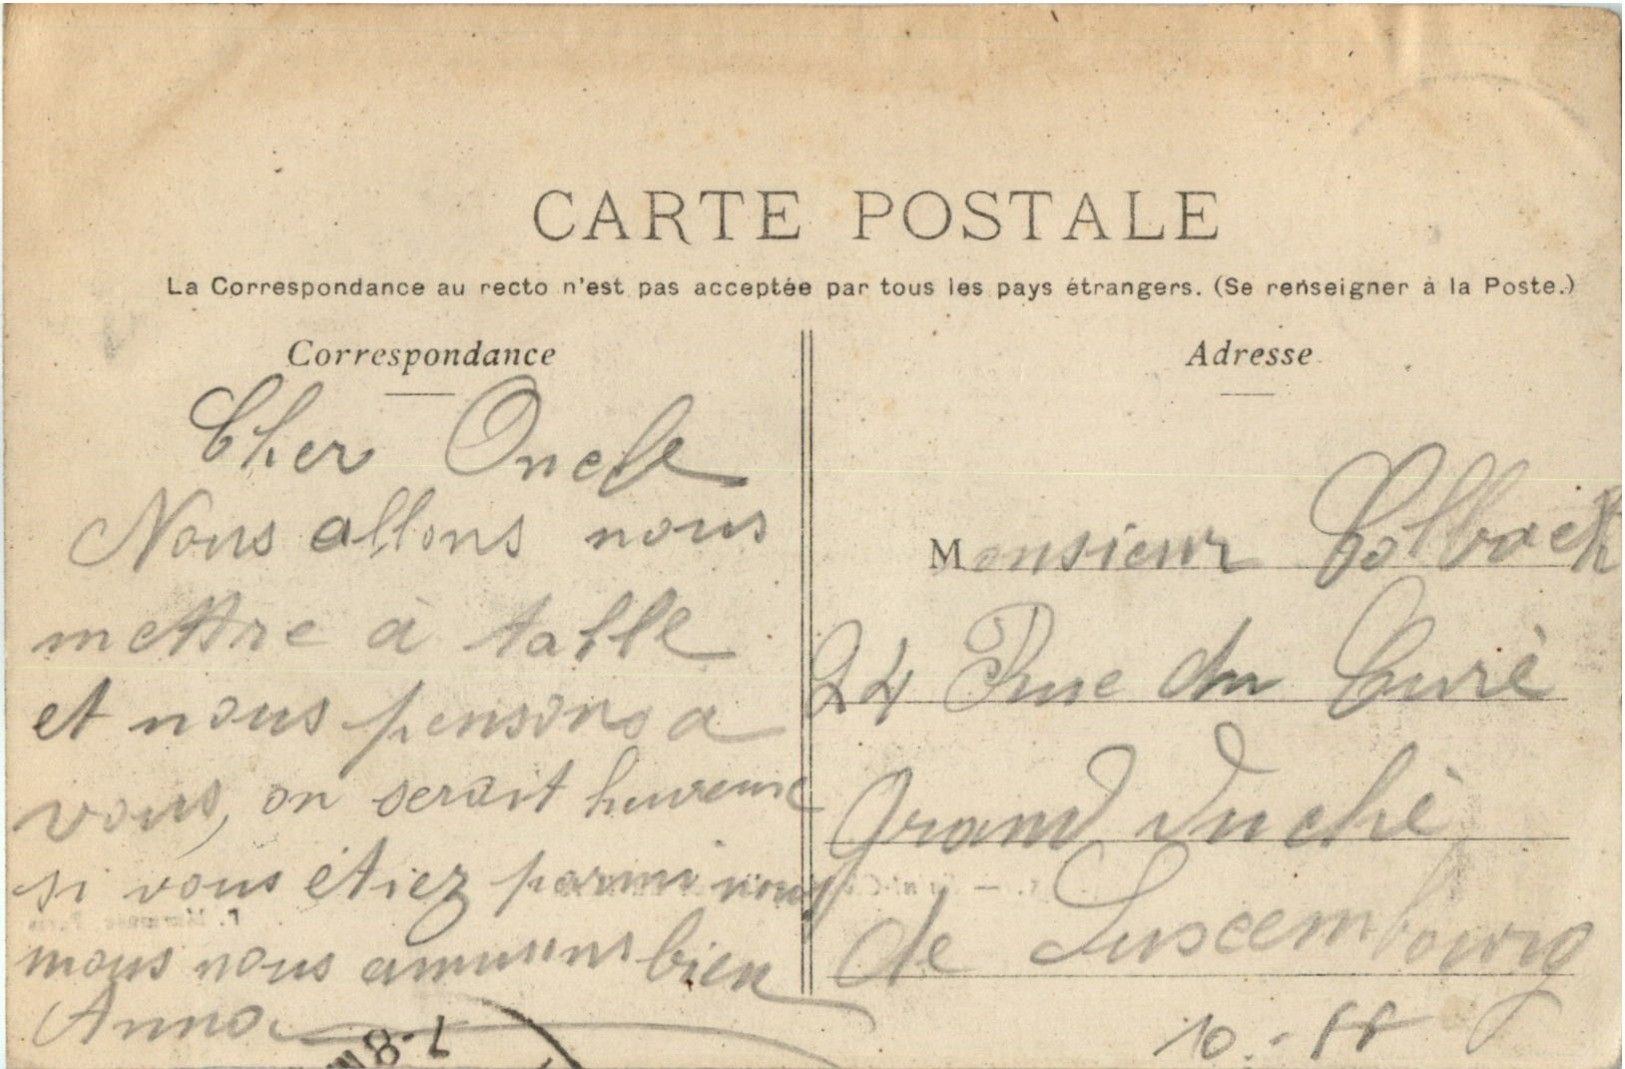 CARTE POSTALE
La Correspondance au recto n'est pas acceptée par tous les pays étrangers. (Se renseigner à la Poste.)
Correspondance
Cher Oncle
Nous allons nous
mettre à table
et nous pensons a
vous, on serait heureuse
si vous étiez parmi nous
nous nous amusons bien
Anna
Adresse
Monsieur Colbach
24 Rue du Curè
Grand Duchè
de Luxcembourg
10.-
7-8